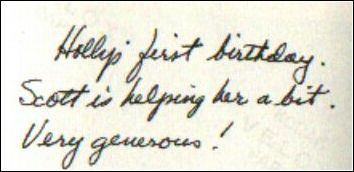 Holly's first birthday.
Scott is helping her a bit.
Very generous!